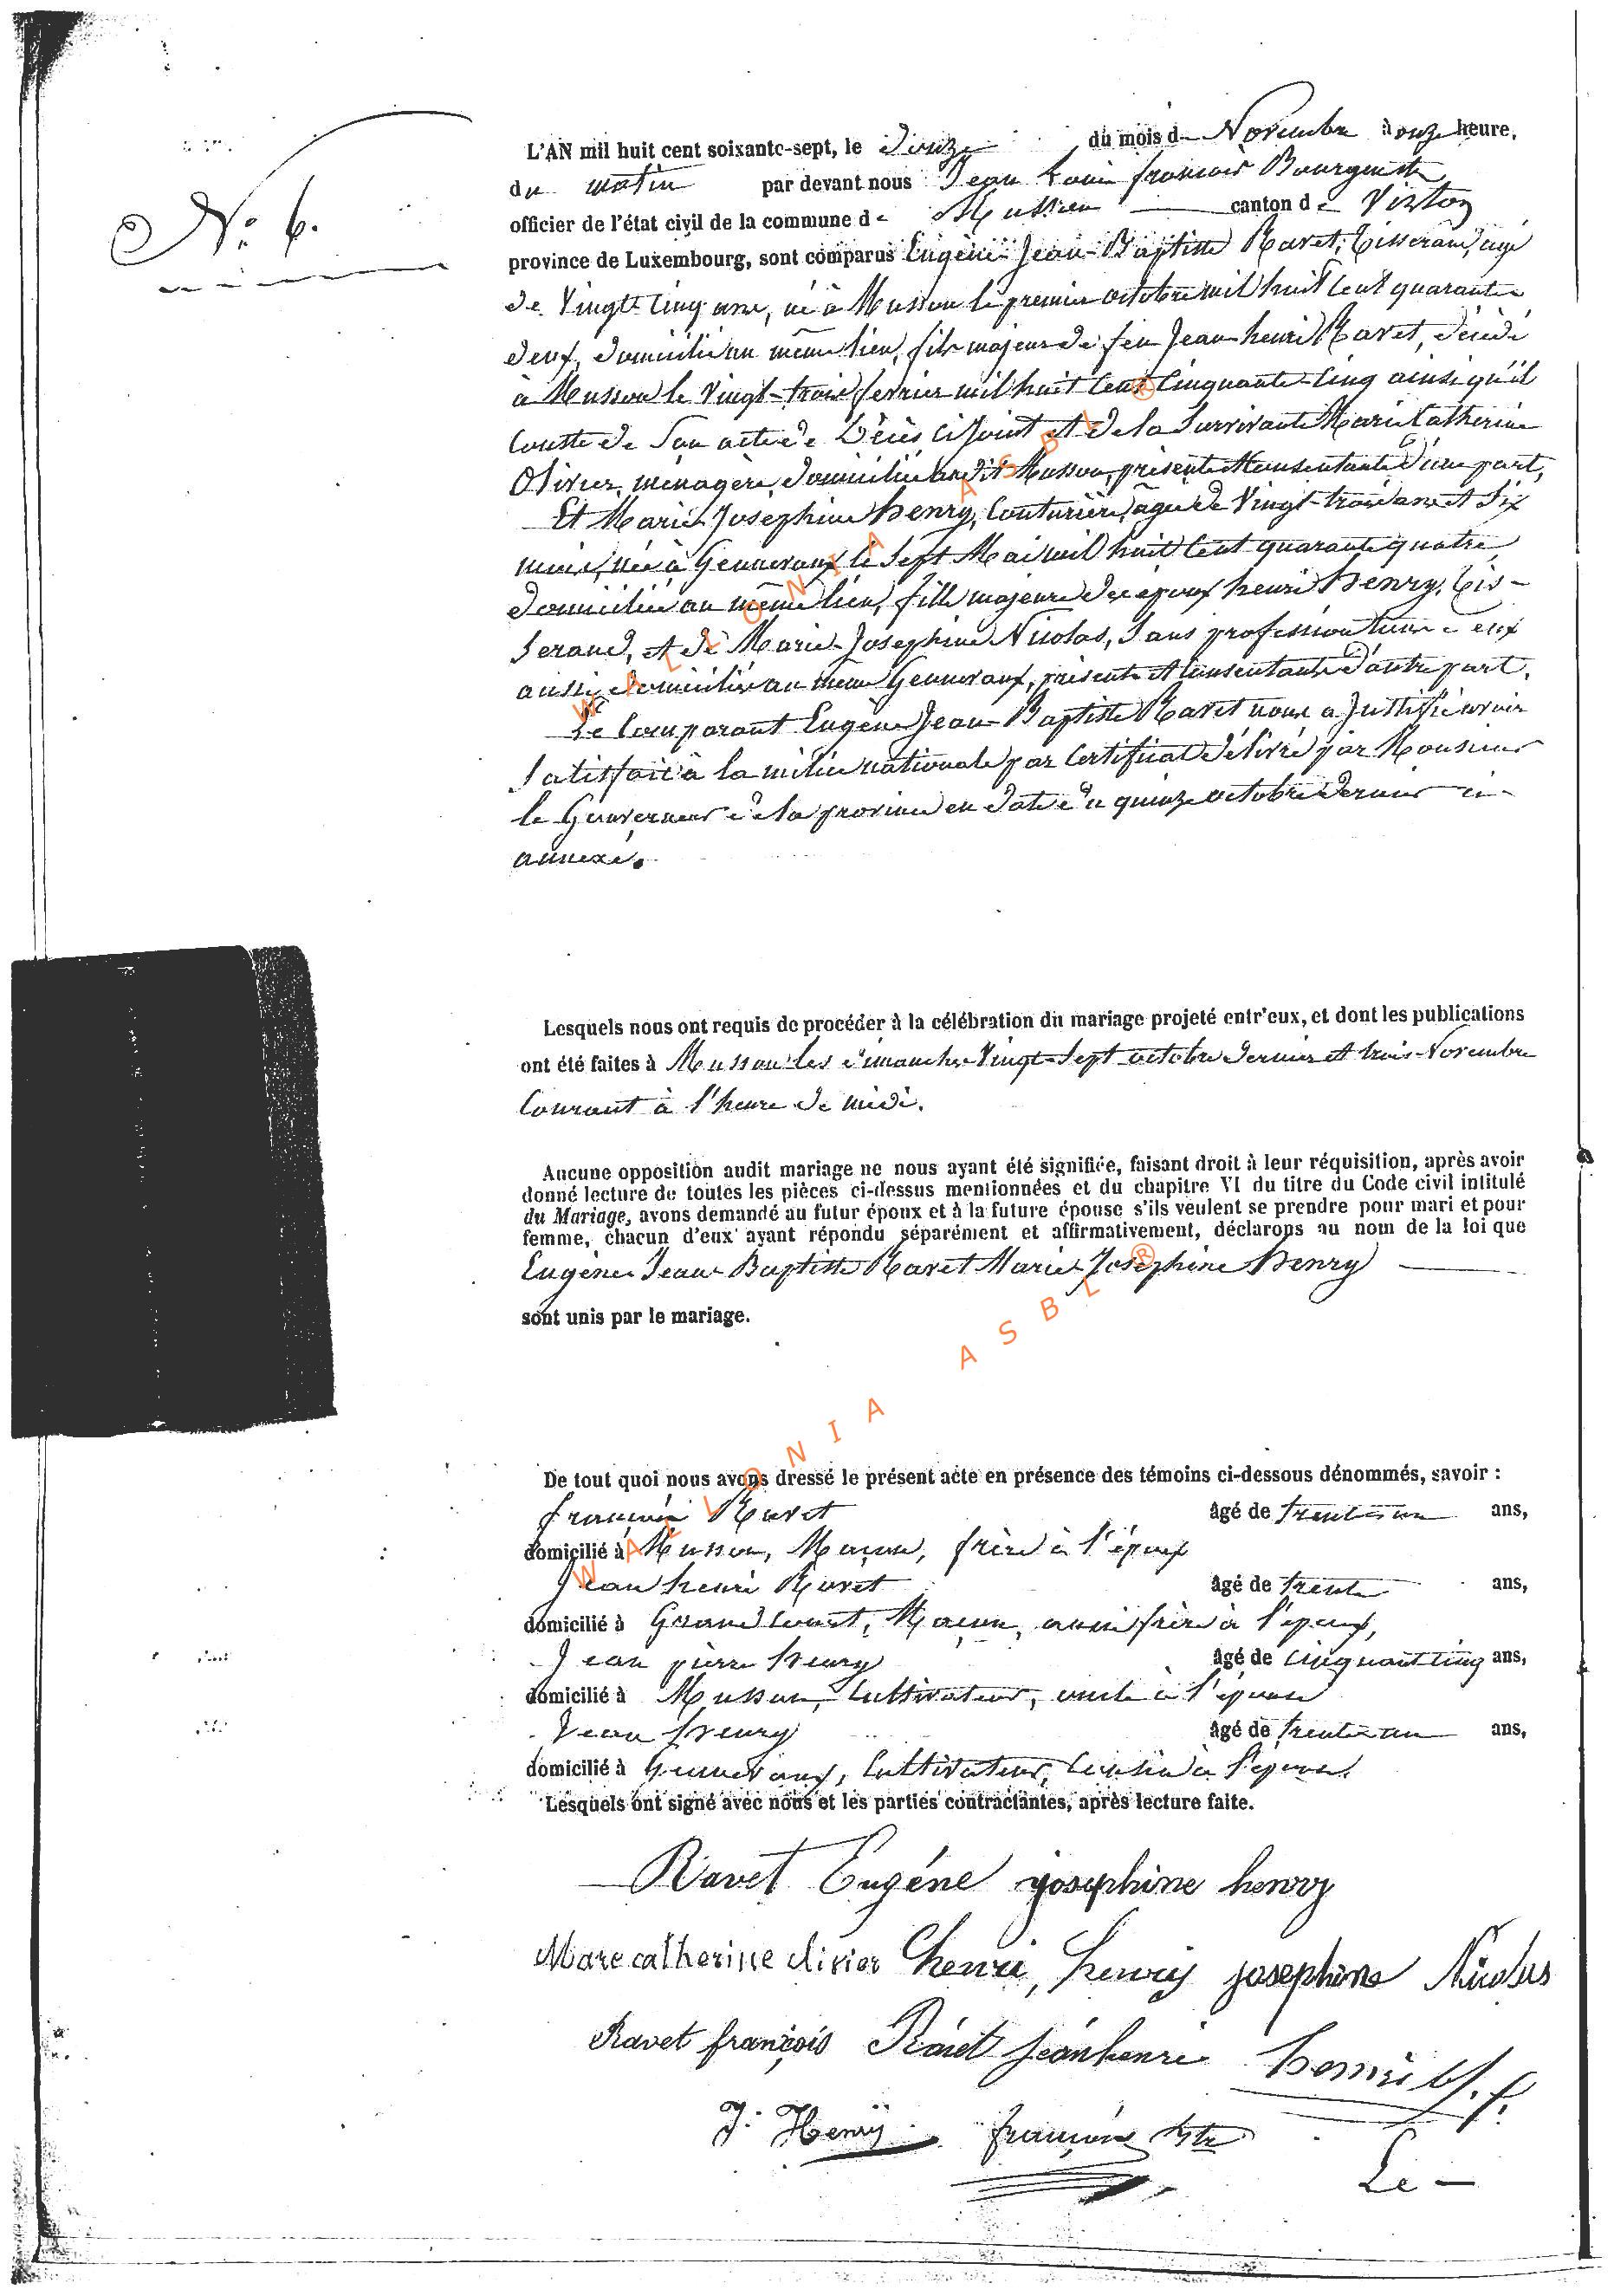 N.° 6.
L'AN mil huit cent soixante-sept, le douze du mois de Novembre à onze heure,
du matin par devant nous Jean Louis françois Bourgmestre
officier de l'état civil de la commune de Musson canton de Virton
province de Luxembourg, sont comparus Eugène Jean-Baptiste Ravet, tisserand, agé
de Vingt cinq ans, né à Musson le premier octobre mil huit cent quarante
deux, domicilié au même lieu, fils majeur de feu Jean henri Ravet, décédé
à Musson le vingt-trois fevrier mil huit cent cinquante-cinq ainsi qu'il
conste de son acte de décès ci joint et de la survivante Marie Catherine
Olivier, ménagère, domiciliée audit Musson, présente et consentante d'une part,
Et Marie Josephine henry, Couturière, agée de Vingt-trois ans et six
mois, née à Gennevaux le sept Mai mil huit cent quarante quatre
domiciliée au même lieu, fille majeure des époux henri henry, tis-
serand, et de Marie Josephine Nicolas, sans profession tous deux
aussi domiciliés au même Gennevaux, présents et consentants d'autre part.
Le Comparant Eugène Jean-Baptiste Ravet nous a justifié avoir
satisfait à la milice nationale par certificat délivré par Monsieur
le Gouverneur de la province en date du quinze octobre dernier ci-
annexé.
Lesquels nous ont requis de procéder à la célébration du mariage projeté entr'eux, et dont les publications
ont été faites à Musson les dimanches Vingt-sept octobre dernier et trois Novembre
Courant à l'heure de midi.
Aucune opposition audit mariage ne nous ayant été signifiée, faisant droit à leur réquisition, après avoir
donné lecture de toutes les pièces ci-dessus mentionnées et du chapitre VI du titre du Code civil intitulé
du Mariage, avons demandé au futur époux et à la future épouse s'ils veulent se prendre pour mari et pour
femme, chacun d'eux ayant répondu séparément et affirmativement, déclarons au nom de la loi que
Eugène Jean Baptiste Ravet Marie Josephine Henry
sont unis par le mariage.
De tout quoi nous avons dressé le présent acte en présence des témoins ci-dessous dénommés, savoir :
françois Ravet âgé de trente un ans,
domicilié à Musson, Maçon, frère à l'époux
Jean henri Ravet âgé de trente ans,
domicilié à Grandcourt, Maçon, aussi frère à l'époux,
Jean pierre henry âgé de cinquante cinq ans,
domicilié à Musson, Cultivateur, oncle à l'épouse
Jean henry âgé de trente un ans,
domicilié à Gennevaux, Cultivateur, Cousin à l'épouse.
Lesquels ont signé avec nous et les parties contractantes, après lecture faite.
Ravet Eugéne josephine henry
Mare catherine olivier henri, henry josephine Nicolas
Ravet françois Ravet jeanhenri
J. Henry françois
Le —
WALLONIA ASBL ®
WALLONIA ASBL ®